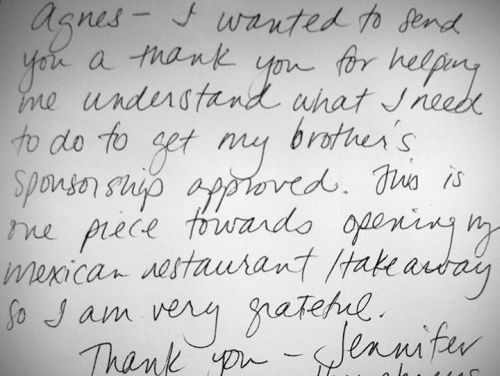 Agnes - I wanted to send
you a thank you for helping
me understand what I need
to do to get my brother's
sponsorship approved. This is
one piece towards opening my
mexican restaurant / takeaway
so I am very grateful.
Thank you - Jennifer